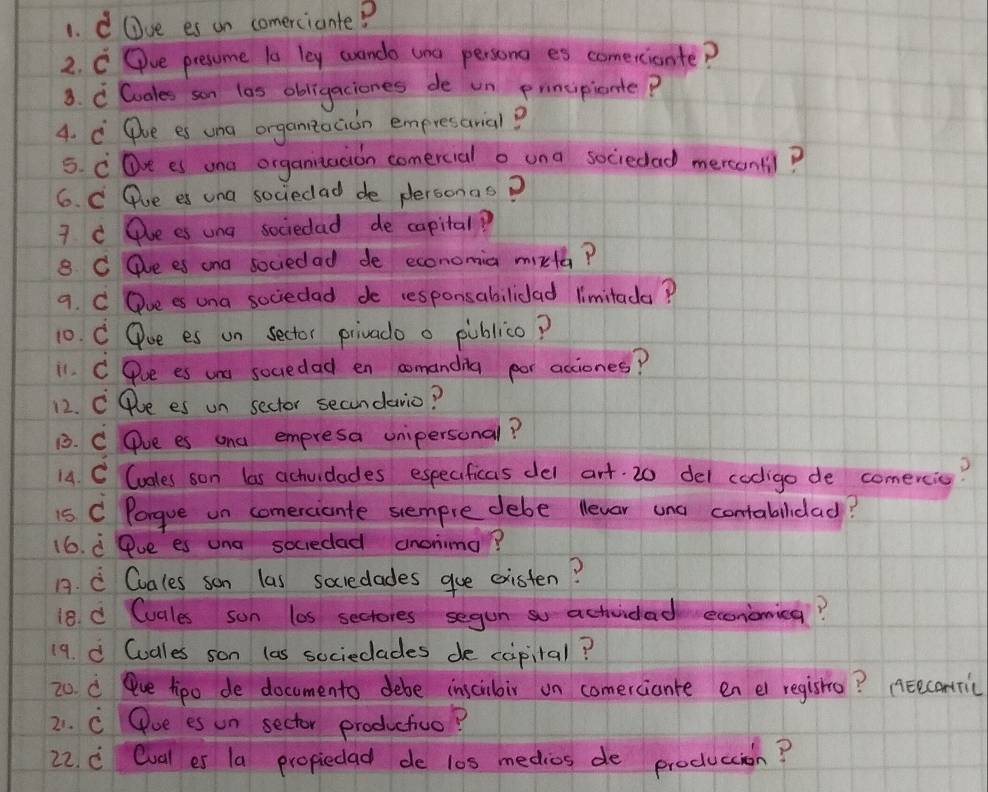 1. ¿Que es un comerciante?
2. ¿Que presume la ley cuando una persona es comerciante?
3. ¿Cuales son las obligaciones de un principiante?
4. ¿Que es una organización empresarial?
5. ¿Que es una organización comercial o una sociedad mercantil?
6. ¿Que es una sociedad de personas?
7 ¿Que es una sociedad de capital?
8 ¿Que es una sociedad de economia mixta?
9. ¿Que es una sociedad de responsabilidad limitada?
10. ¿Que es un sector privado o público?
11. ¿Que es una sociedad en comandita por acciones?
12. ¿Que es un sector secundario?
13. ¿Que es una empresa unipersonal?
14. ¿Cuales son las actividades especificas del art. 20 del codigo de comercio?
15 ¿Porque un comerciante siempre debe llevar una contabilidad?
16. ¿Que es una sociedad anonima?
17. ¿Cuales son las sociedades que existen?
18. ¿Cuales son los sectores segun su actividad económica?
19. ¿Cuales son las sociedades de capital?
20. ¿Que tipo de documento debe inscribir un comerciante en el registro? MERCANTIL
21. ¿Que es un sector productivo?
22. ¿Cual es la propiedad de los medios de producción?